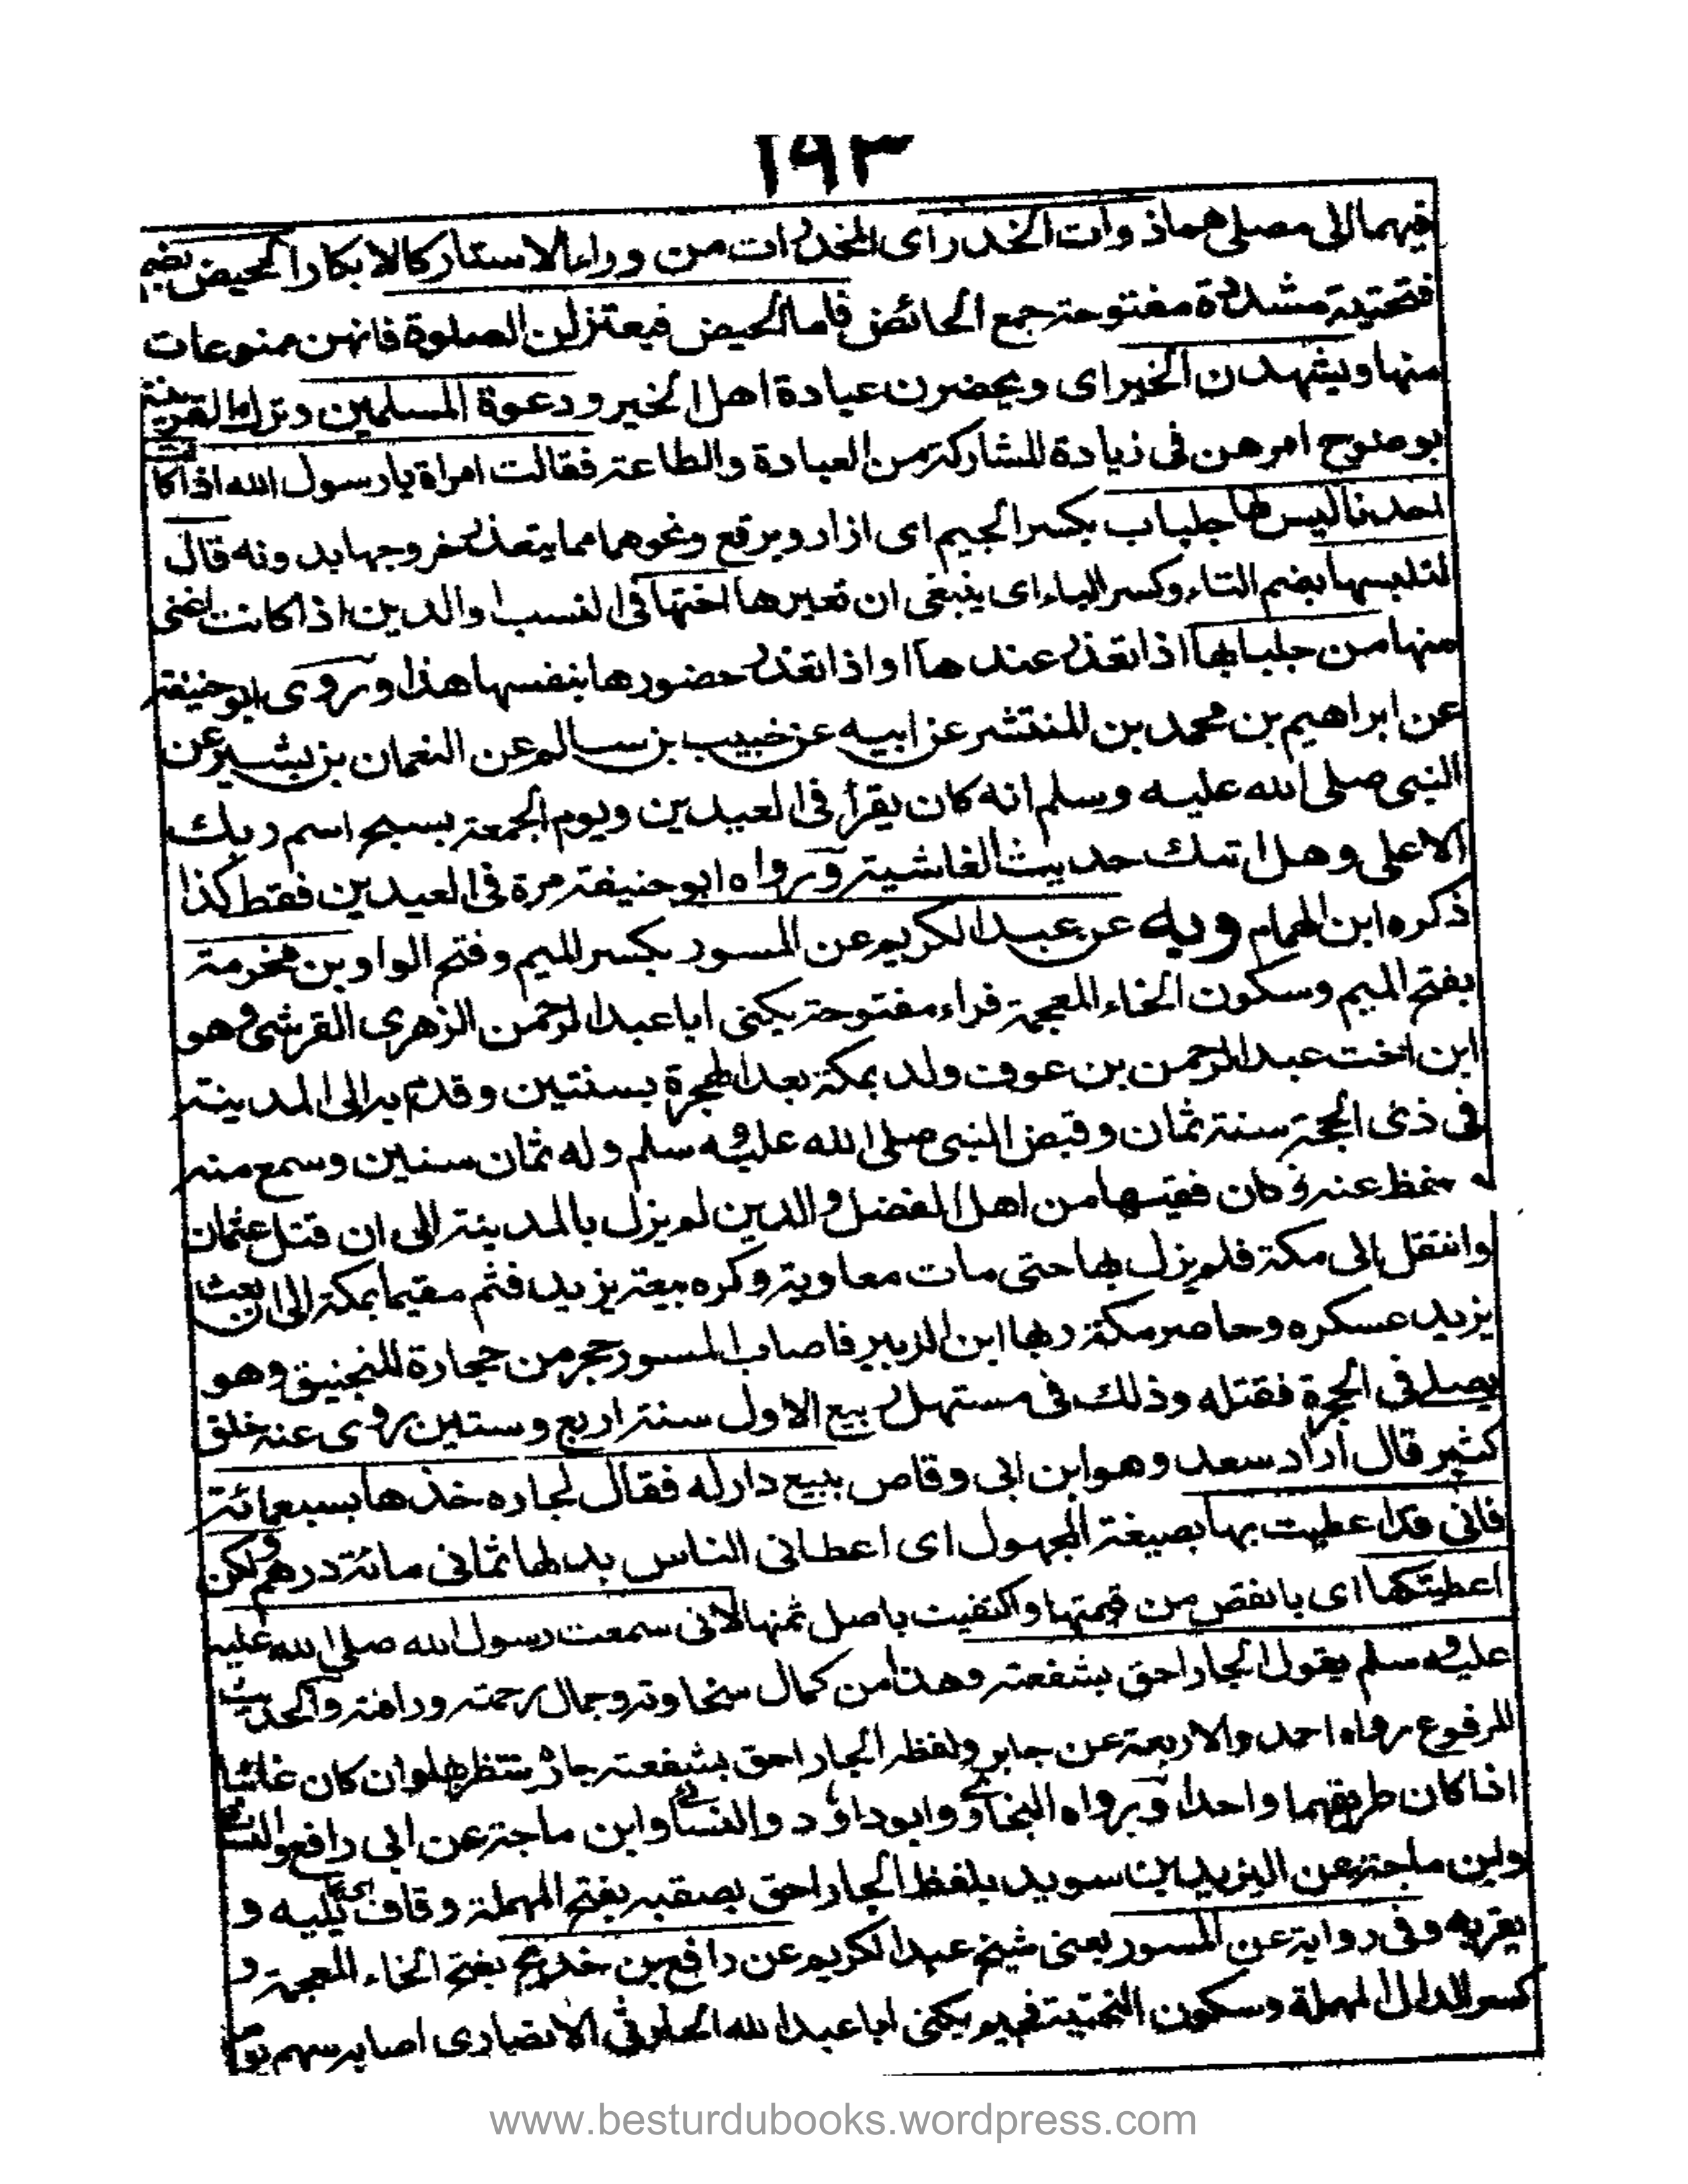 ١٩٣
فيهما الى مصلى هما ذوات الخدر اى المخدرات من وراء الاستار كالابكار الحيض بضم
فتحتية مشددة مفتوحة جمع الحائض فاما الحيض فيعتزلن الصلوة فانهن ممنوعات
منها ويشهدن الخير اى ويحضرن عبادة اهل الخير ودعوة المسلمين وترك القرينة
بوضوح امرهن فى زيادة المشاركة من العبادة والطاعة فقالت امراة يا رسول الله اذا كانت
احدنا ليس لها جلباب بكسر الجيم اى ازار وبرقع ونحوهما مما يتعذر خروجها بدونه قال
لتلبسها بضم التاء وكسر الباء اى ينبغى ان تعيرها اختها فى النسب او الدين اذا كانت اغنى
منها من جلبابها اذا تعذر عندها او اذا تعذر حضورها بنفسها هذا وروى ابو حنيفة
عن ابراهيم بن محمد بن المنتشر عن ابيه عن خبيب بن سالم عن النعمان بن بشير عن
النبى صلى الله عليه وسلم انه كان يقرأ فى العيدين ويوم الجمعة بسبح اسم ربك
الاعلى وهل اتىك حديث الغاشية ورواه ابو حنيفة مرة فى العيدين فقط كذا
ذكره ابن الهمام وبه عن عبد الكريم عن المسور بكسر الميم وفتح الواو بن مخرمة
بفتح الميم وسكون الخاء المعجمة فراء مفتوحة يكنى ابا عبد الرحمن الزهرى القرشى وهو
ابن اخت عبد الرحمن بن عوف ولد بمكة بعد الهجرة بسنتين وقدم به الى المدينة
فى ذى الحجة سنة ثمان وقبض النبى صلى الله عليه وسلم وله ثمان سنين وسمع منه
وحفظ عنه وكان فقيها من اهل الفضل والدين لم يزل بالمدينة الى ان قتل عثمان
وانتقل الى مكة فلم يزل بها حتى مات معاوية وكره بيعة يزيد فثم مقيما بمكة الى ان بعث
يزيد عسكره وحاصر مكة وبها ابن الزبير فاصاب المسور حجر من حجارة المنجنيق وهو
يصلى فى الحجرة فقتله وذلك فى مستهل ربيع الاول سنة اربع وستين روى عنه خلق
كثير قال اراد سعد وهو ابن ابى وقاص ببيع دار له فقال لجاره خذها بسبعمائة
فانى قد اعطيت بها بصيغة المجهول اى اعطانى الناس بدلها ثمانى مائة درهم ولكن
اعطيتكها اى بانقص من قيمتها واكتفيت باصل ثمنها لانى سمعت رسول الله صلى الله عليه
عليه وسلم يقول الجار احق بشفعته وهذا من كمال سخاوته وجمال رحمته ورافته والحديث
المرفوع رواه احمد والاربعة عن جابر ولفظه الجار احق بشفعة جاره ينتظر بها وان كان غائبا
اذا كان طريقهما واحدا ورواه البخارى وابو داؤد والنسائى وابن ماجة عن ابى رافع والنسائى
وابن ماجة عن الىزيد بن سويد بلفظ الجار احق بصقبه بفتح المهملة وقاف اى بما يليه و
يقربه وفى رواية عن المسور يعنى شيخ عبد الكريم عن رافع بن خديج بفتح الخاء المعجمة و
كسر الدال المهملة وسكون التحتية فجيم يكنى ابا عبد الله الحارثى الانصارى اصابه سهم يوم
www.besturdubooks.wordpress.com